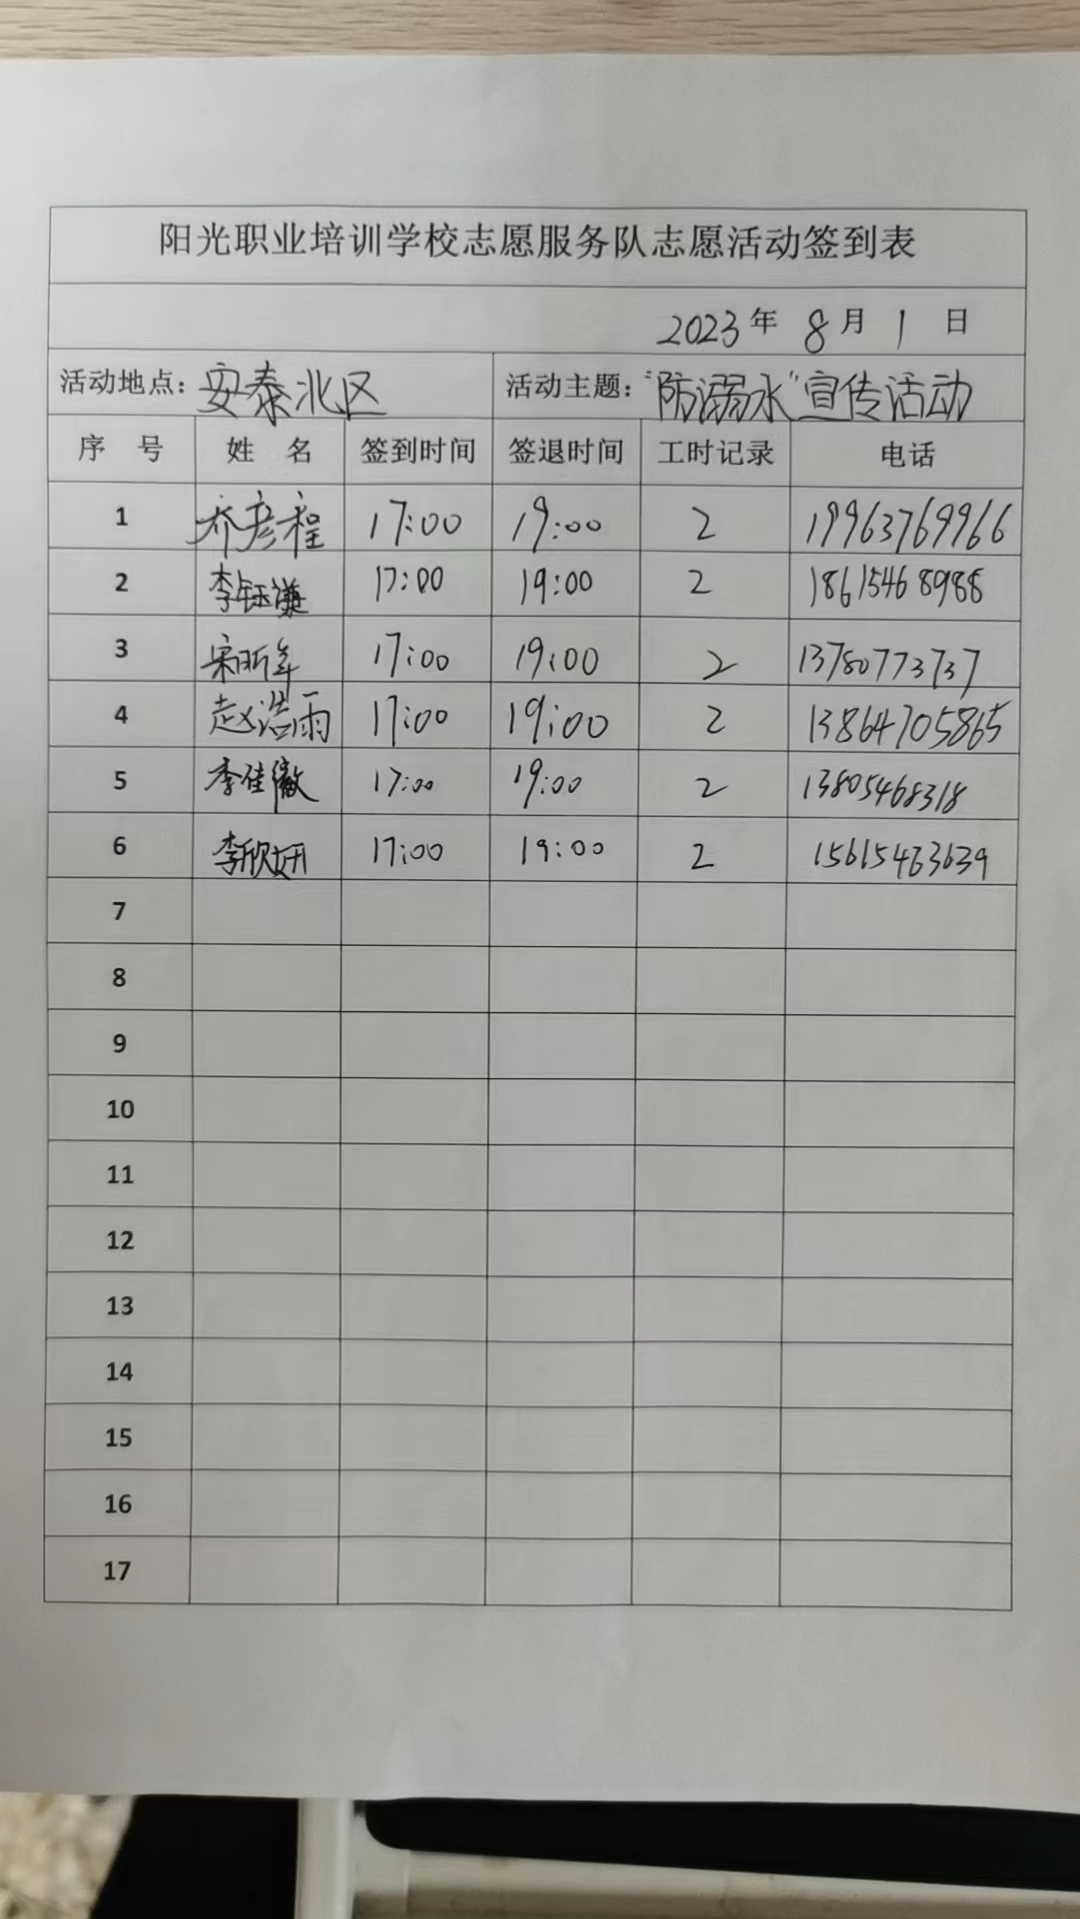 阳光职业培训学校志愿服务队志愿活动签到表
2023年 8月 1 日
活动地点：安泰北区 活动主题：“防溺水”宣传活动
序 号 姓 名 签到时间 签退时间 工时记录 电话
1 乔彦程 17:00 19:00 2 19963769966
2 李钰谦 17:00 19:00 2 18615468988
3 宋昕年 17:00 19:00 2 13780773737
4 赵浩雨 17:00 19:00 2 13864705865
5 李佳徽 17:00 19:00 2 13805468318
6 李欣妍 17:00 19:00 2 15615463639
7
8
9
10
11
12
13
14
15
16
17